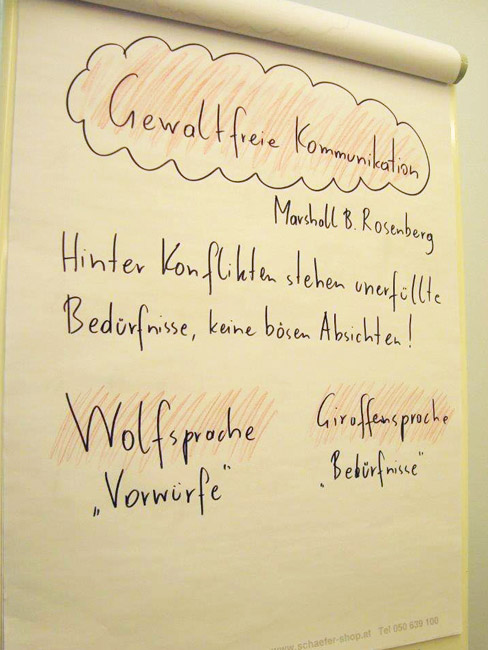 Gewaltfreie Kommunikation
Marshall B. Rosenberg
Hinter Konflikten stehen unerfüllte
Bedürfnisse, keine bösen Absichten!
Wolfsprache
„Vorwürfe“
Giraffensprache
„Bedürfnisse“
www.schaefer-shop.at Tel 050 639 100